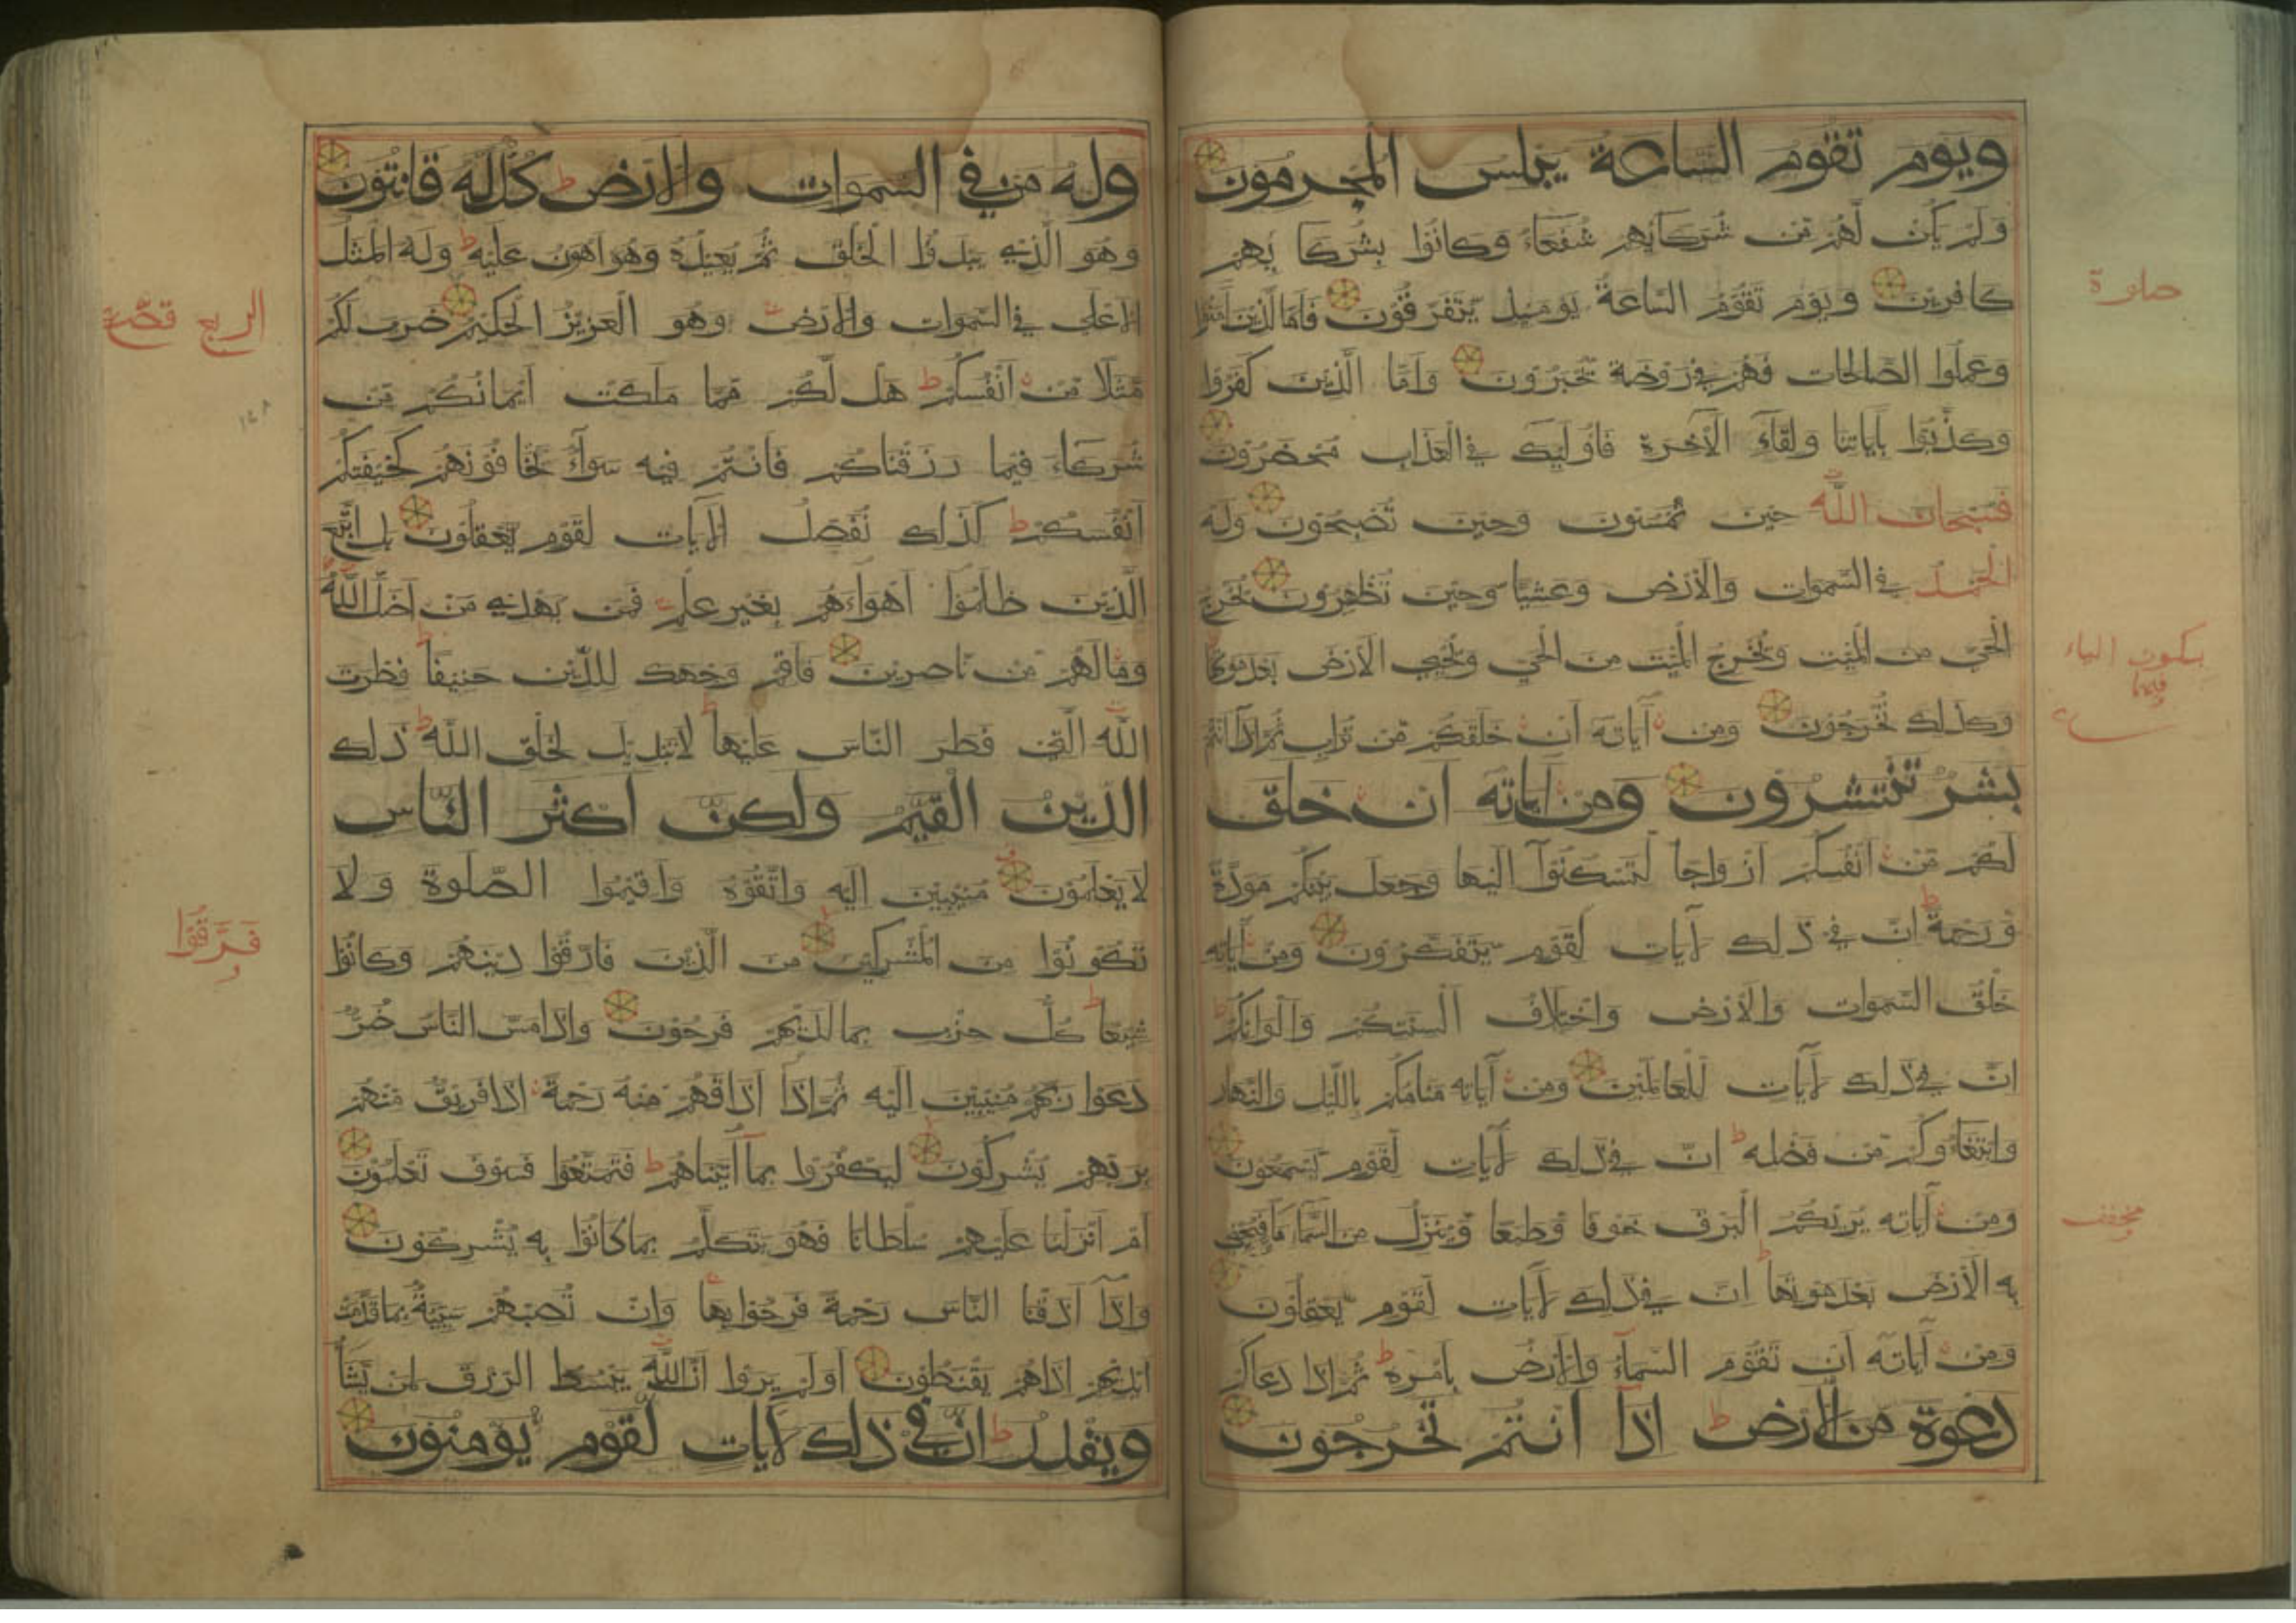 ويوم تقوم الساعة يبلس المجرمون
ولم يكن لهم من شركائهم شفعاء وكانوا بشركائهم
كافرين ويوم تقوم الساعة يومئذ يتفرقون فاما الذين امنوا
وعملوا الصالحات فهم في روضة يحبرون واما الذين كفروا
وكذبوا باياتنا ولقاء الاخرة فاوليك في العذاب محضرون
فسبحان الله حين تمسون وحين تصبحون وله
الحمد في السموات والارض وعشيا وحين تظهرون يخرج
الحي من الميت ويخرج الميت من الحي ويحيي الارض بعد موتها
وكذلك تخرجون ومن آياته ان خلقكم من تراب ثم اذا انتم
بشر تنتشرون ومن اياته ان خلق
لكم من انفسكم ازواجا لتسكنوا اليها وجعل بينكم مودة
ورحمة ان في ذلك لآيات لقوم يتفكرون ومن اياته
خلق السموات والارض واختلاف السنتكم والوانكم
ان في ذلك لآيات للعالمين ومن آياته منامكم بالليل والنهار
وابتغاؤكم من فضله ان في ذلك لآيات لقوم يسمعون
ومن آياته يريكم البرق خوفا وطمعا وينزل من السماء ماء فيحيي
به الارض بعد موتها ان في ذلك لآيات لقوم يعقلون
ومن آياته ان تقوم السماء والارض بامره ثم اذا دعاكم
دعوة من الارض اذا انتم تخرجون
صلوة
بسكون الياء
فيهما
مخفف
وله من في السموات والارض كل له قانتون
وهو الذي يبدؤا الخلق ثم يعيده وهو اهون عليه وله المثل
الاعلى في السموات والارض وهو العزيز الحكيم ضرب لكم
مثلا من انفسكم هل لكم مما ملكت ايمانكم من
شركاء فيما رزقناكم فانتم فيه سواء تخافونهم كخيفتكم
انفسكم كذلك نفصل الآيات لقوم يعقلون بل اتبع
الذين ظلموا اهواءهم بغير علم فمن يهدي من اضل الله
وما لهم من ناصرين فاقم وجهك للدين حنيفا فطرت
الله التي فطر الناس عليها لا تبديل لخلق الله ذلك
الدين القيم ولكن اكثر الناس
لا يعلمون منيبين اليه واتقوه واقيموا الصلوة ولا
تكونوا من المشركين من الذين فارقوا دينهم وكانوا
شيعا كل حزب بما لديهم فرحون واذا مس الناس ضر
دعوا ربهم منيبين اليه ثم اذا اذاقهم منه رحمة اذا فريق منهم
بربهم يشركون ليكفروا بما آتيناهم فتمتعوا فسوف تعلمون
ام انزلنا عليهم سلطانا فهو يتكلم بما كانوا به يشركون
واذا اذقنا الناس رحمة فرحوا بها وان تصبهم سيئة بما قدمت
ايديهم اذا هم يقنطون اولم يروا ان الله يبسط الرزق لمن يشاء
ويقدر ان في ذلك لآيات لقوم يؤمنون
الربع
فرقوا